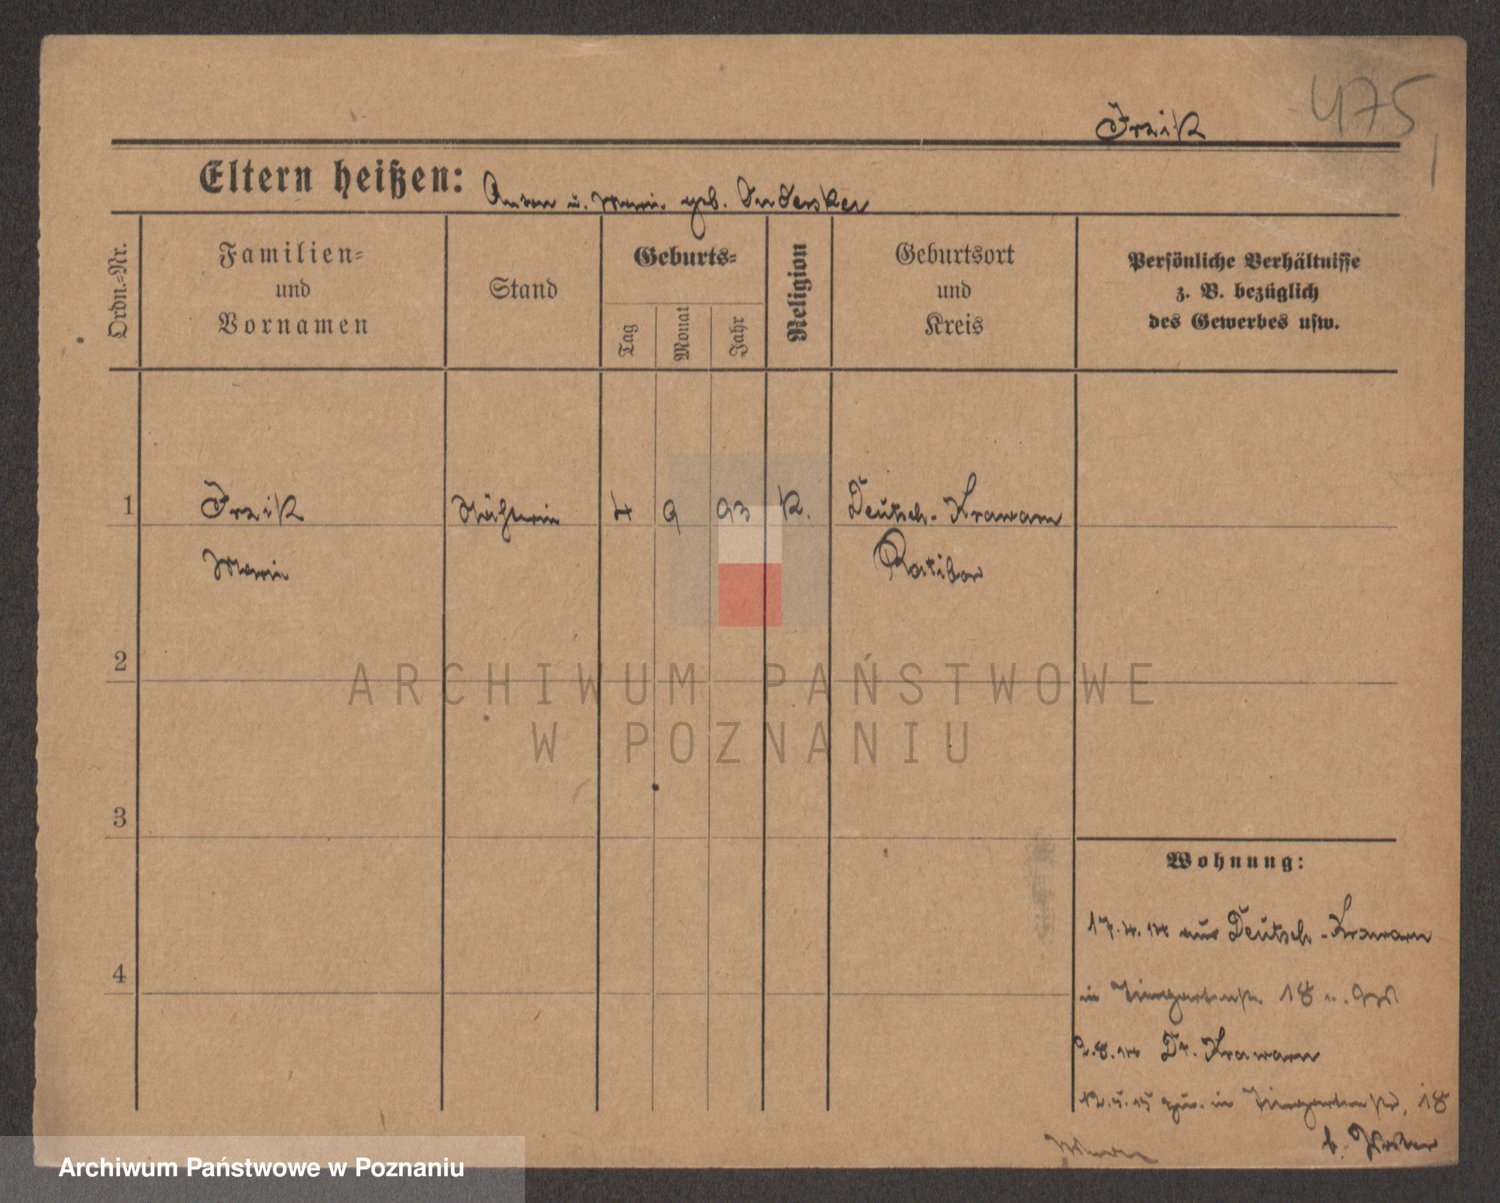 475
Irzik
Eltern heißen: Anton u. Marie geb.
Ordn.-Nr.
Familien-
und
Vornamen
Stand
Geburts-
Tag
Monat
Jahr
Religion
Geburtsort
und
Kreis
Persönliche Verhältnisse
z. B. bezüglich
des Gewerbes usw.
1 Irzik Näherin 4 9 93 K. Deutsch-Krawarn
Marie Ratibor
2
ARCHIWUM PAŃSTWOWE
W POZNANIU
3
Wohnung:
17.4.14 aus Deutsch-Krawarn
4
in Tiergartenstr. 18
2.8.14 Dt. Krawarn
12.5.15 in Tiergartenstr. 18
b.
Archiwum Państwowe w Poznaniu